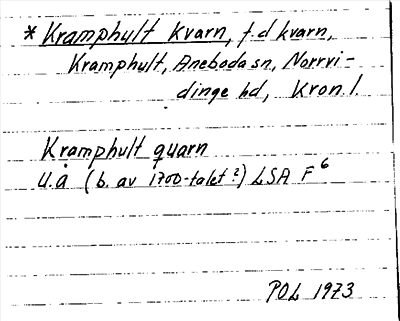 * Kramphult kvarn, f.d kvarn,
Kramphult, Aneboda sn, Norrvi-
dinge hd, Kron. l
Kramphult quarn
U.å (b. av 1700-talet?) LSA F6
POL 1973